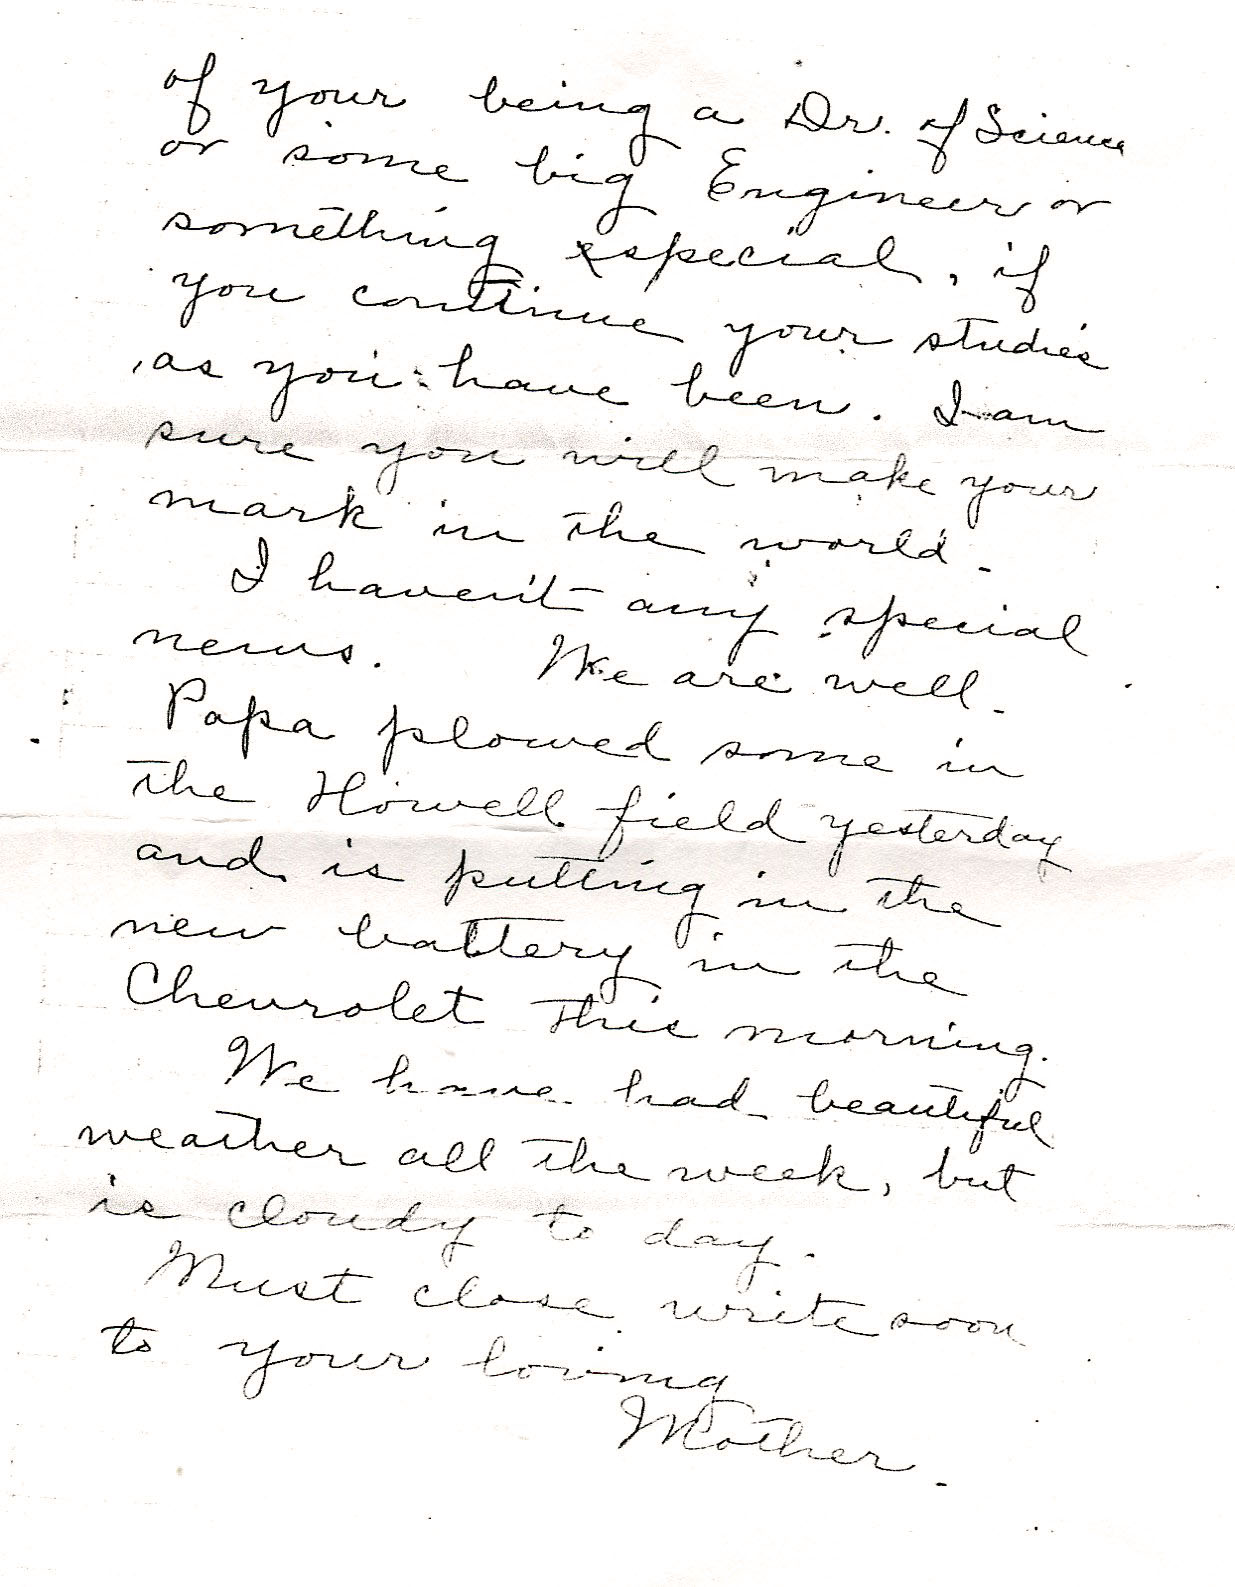 of your being a Dr. of Science
or some big Engineer or
something especial, if
you continue your studies
as you have been. I am
sure you will make your
mark in the world.
I haven't any special
news. We are well.
Papa plowed some in
the Howell field yesterday
and is putting in the
new battery in the
Chevrolet this morning.
We have had beautiful
weather all the week, but
is cloudy to day.
Must close write soon
to your loving
Mother.